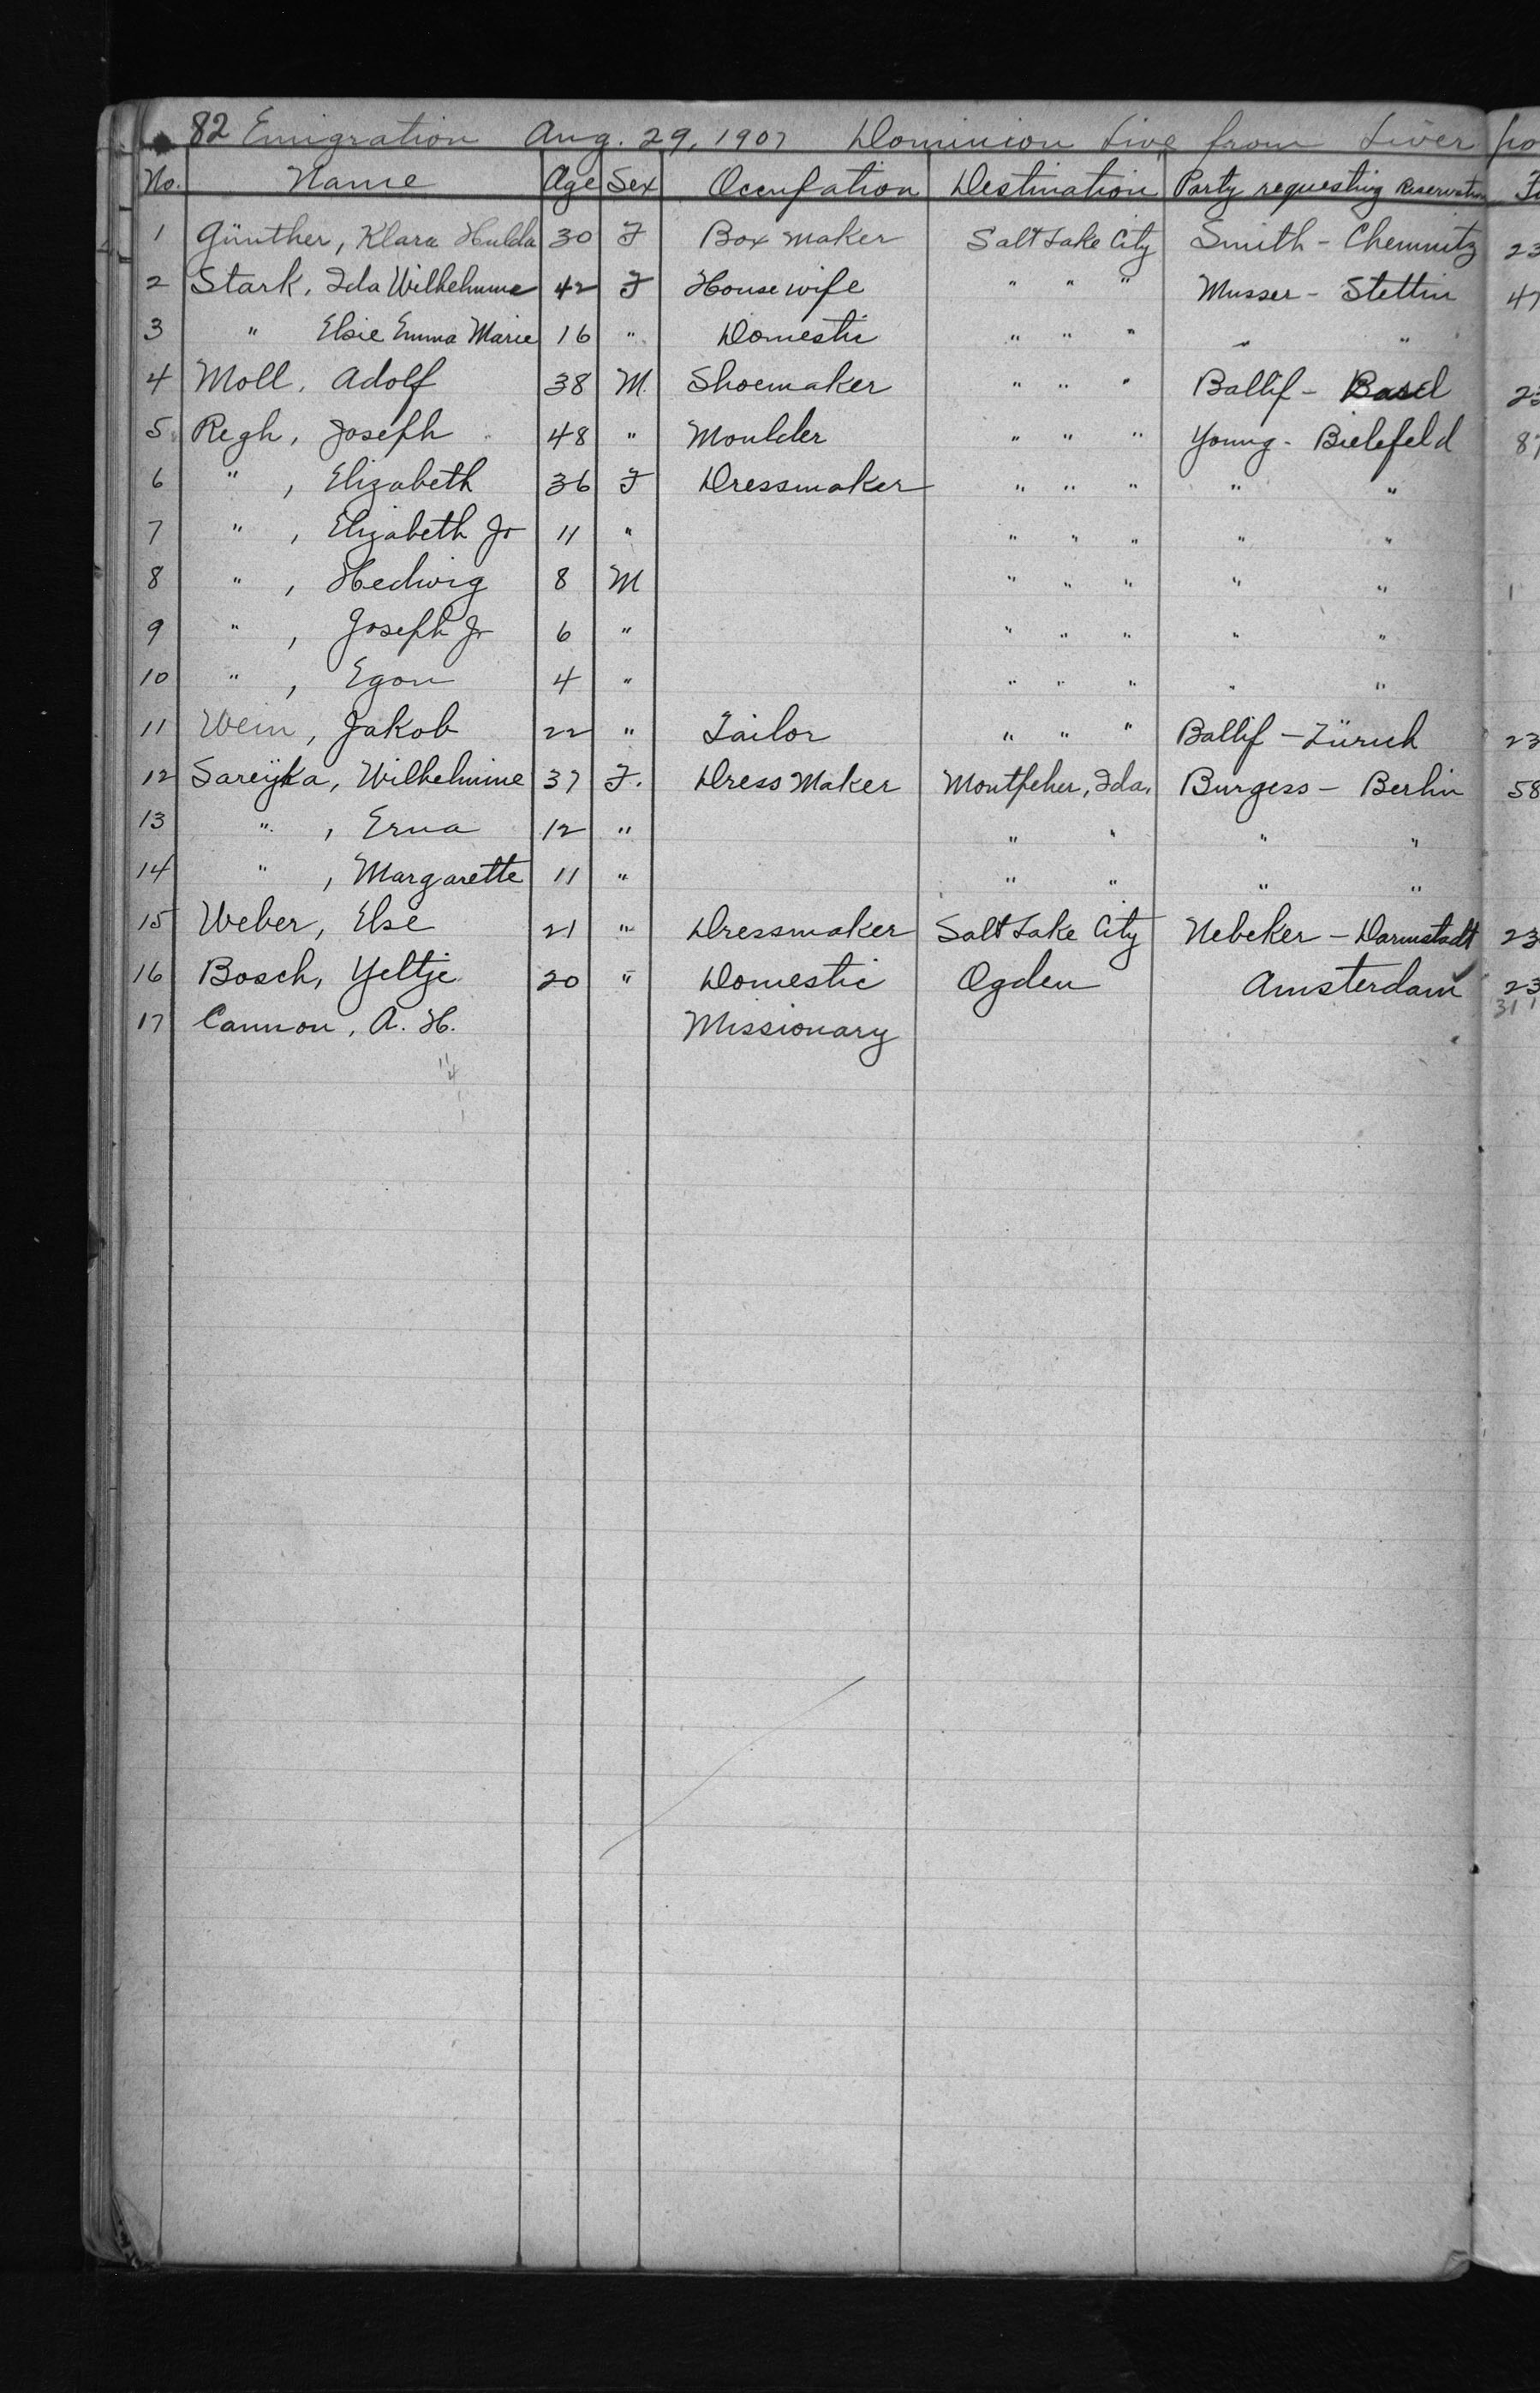 82 Emigration Aug. 29, 1907 Dominion Line from Liver po
No. Name Age Sex Occupation Destination Party requesting Reservation
1 Günther, Klara Hulda 30 F Box Maker Salt Lake City Smith - Chemnitz 23
2 Stark, Ida Wilhelmine 42 F Housewife " " " Musser - Stettin 47
3 " Elsie Emma Marie 16 " Domestic " " " " "
4 Moll, Adolf 38 M. Shoemaker " " " Ballif - Basel 23
5 Regh, Joseph 48 " Moulder " " " Young - Bielefeld 87
6 " , Elizabeth 36 F Dressmaker " " " " "
7 " , Elizabeth Jr 11 " " " " " "
8 " , Hedwig 8 M " " " " "
9 " , Joseph Jr 6 " " " " " "
10 " , Egon 4 " " " " " "
11 Wein, Jakob 22 " Tailor " " " Ballif - Zürich 23
12 Sareyka, Wilhelmine 37 F. Dress Maker Montpelier, Ida. Burgess - Berlin 58
13 " , Erna 12 " " " " "
14 " , Margarette 11 " " " " "
15 Weber, Else 21 " Dressmaker Salt Lake City Nebeker - Darmstadt 23
16 Bosch, Yeltje 20 " Domestic Ogden Amsterdam 23
311
17 Cannon, A. H. Missionary